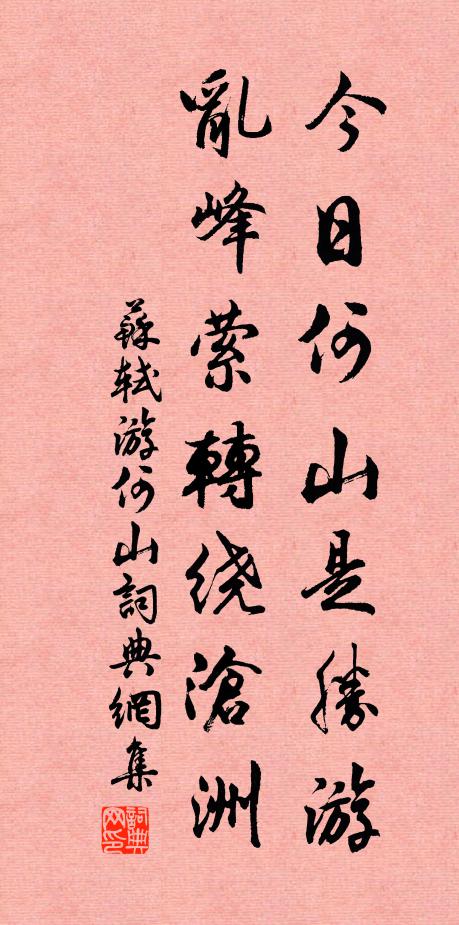 今日何山是勝游
亂峰萦轉绕滄洲
蘇軾游何山詞典網集
詞典网印